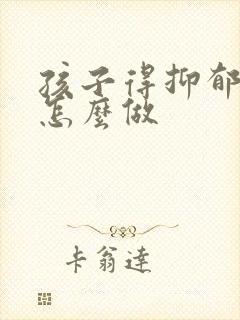 孩子得抑郁
怎麼做
卡翁達